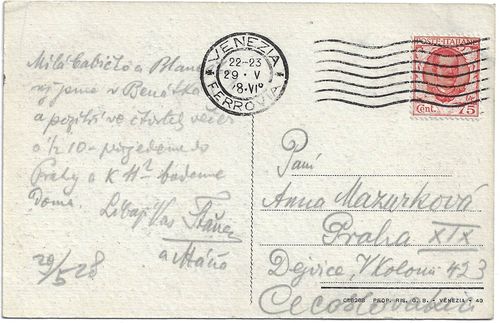 Milá Babičko a
žijeme v Benátkách
a pozítří ve čtvrtek večer
o ½ 10 přijedeme do
Prahy a k 11té budeme
doma. Líbají Vás
a Máňa
29/5 28
VENEZIA
22-23
29 · V
FERROVIA
POSTE ITALIANE
Cent. 75
Paní
Anna Mazurková
Praha XIX
Dejvice, V Kolonii 423
Cecoslovachia
PROP. RIS. G. B. - VENEZIA - 40